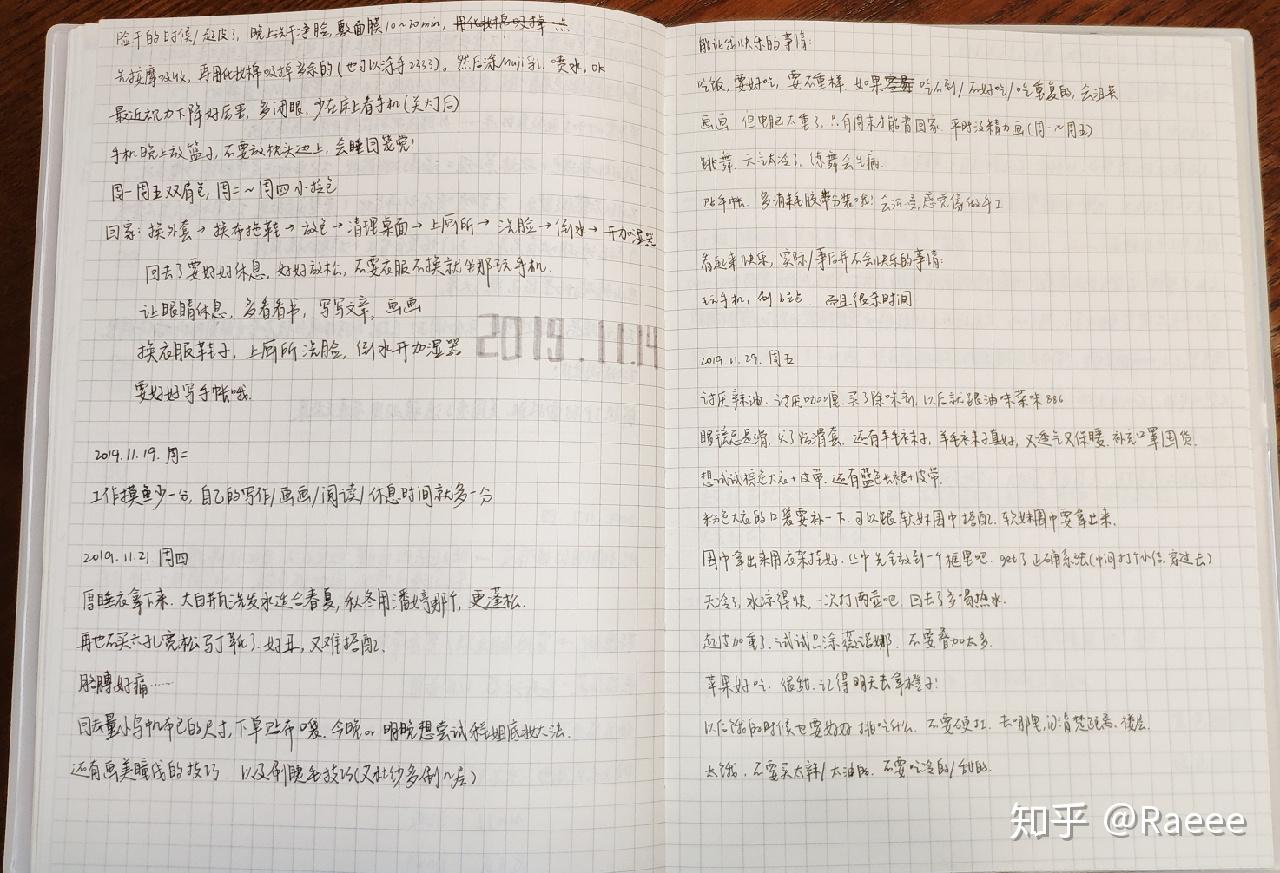 脸干的时候/起皮了, 晚上洗干净脸, 敷面膜10~20min,
先按摩吸收, 再用化妆棉吸掉多余的(也可以涂手2333), 然后涂Muji乳, 喷水, OK
最近视力下降好厉害, 多闭眼, 少在床上看手机(关灯后)
手机晚上放篮子, 不要放枕头边上, 会睡回笼觉!
周一周五双肩包, 周二~周四小挎包
回家: 换外套→换布拖鞋→放包→清理桌面→上厕所→洗脸→倒水→开加湿器
回去了要好好休息, 好好放松, 不要衣服不换就坐那玩手机.
让眼睛休息, 多看看书, 写写文章, 画画
换衣服鞋子, 上厕所洗脸, 倒水开加湿器
要好好写手帐哦.
2019.11.14
2019.11.19. 周二
工作摸鱼少一分, 自己的写作/画画/阅读/休息时间就多一分
2019.11.21 周四
厚睡衣拿下来. 大白瓶洗发水适合春夏, 秋冬用潘婷那个, 更蓬松.
再也不买六孔宽松马丁靴了. 好丑, 又难搭配.
胳膊好痛……
回去量小写字帆布包的尺寸, 下单 布袋. 今晚or明晚想尝试程姐底妆大法.
还有画美瞳线的技巧 以及刷睫毛技巧(又
能让我快乐的事情:
吃饭, 要好吃, 要不重样. 如果吃不到/不好吃/吃重复的, 会沮丧
画画. 但电脑太重了, 只有周末才能背回家. 平时没精力画(周一~周五)
跳舞. 天太冷了, 练舞会生病.
贴手帐. 多消耗胶带分装哦! 会 , 感觉像做手工
看起来快乐, 实际/事后并不会快乐的事情:
玩手机, 刷b站 而且很杀时间
2019.11.29. 周五
讨厌辣油. 讨厌咖喱. 买了除味剂, 以后就跟油味菜味886
眼镜总是滑. 买了防滑套. 还有羊毛袜子, 羊毛袜子真好, 又透气又保暖. 补充口罩囤货.
想试试棕色大衣+皮带. 还有蓝色长裙+皮带.
粉色大衣的口袋要补一下. 可以跟软妹围巾搭配. 软妹围巾要拿出来.
围巾拿出来用衣架挂好. 丝巾先全放到一个框里吧. get了正确系法(中间打个小结, 穿过去)
天冷了, 水凉得快, 一次打两壶吧. 回去了多喝热水.
起皮加重了. 试试只涂薇诺娜. 不要叠加太多.
苹果好吃. 很甜. 记得明天去拿橙子!
以后饿的时候也要好好挑吃什么. 不要硬扛. 去哪里, 问清楚距离. 楼层.
太饿, 不要买太辣/太油的. 不要吃冷的/甜的.
知乎 @Raeee